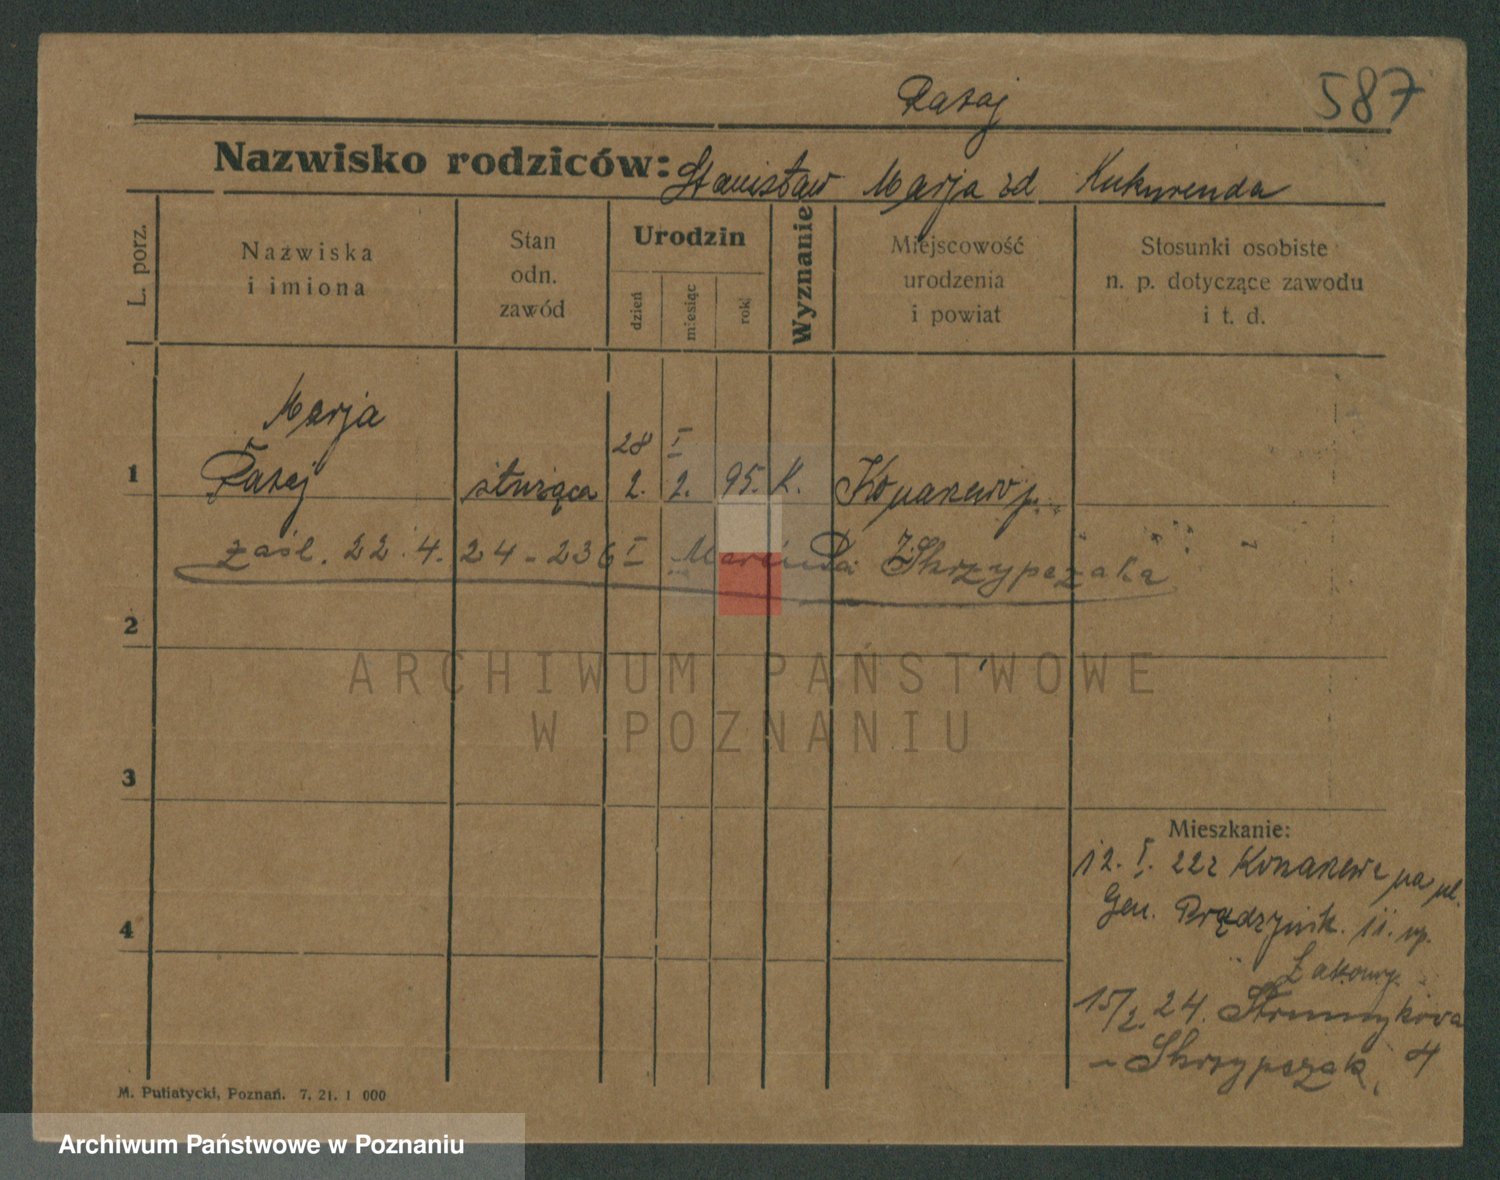 Rataj
587
Nazwisko rodziców: Stanisław Marja zd Kukurenda
L. porz.
Nazwiska i imiona
Stan odn. zawód
Urodzin
dzień
miesiąc
rok
Wyznanie
Miejscowość urodzenia i powiat
Stosunki osobiste n. p. dotyczące zawodu i t. d.
Marja
28 I
1 Rataj służąca 2. 2. 95. K. Konarzewo p.
zaśl. 22.4.24 - 236 I Marcina Skrzypczaka
2
3
4
Mieszkanie:
12. I. 22 z Konarzewa na pl.
Gen. Prądzyńsk. 11. np.
15/2. 24. Strumykowa
- Skrzypczak 4
M. Putiatycki, Poznań. 7. 21. 1 000
ARCHIWUM PAŃSTWOWE
W POZNANIU
Archiwum Państwowe w Poznaniu